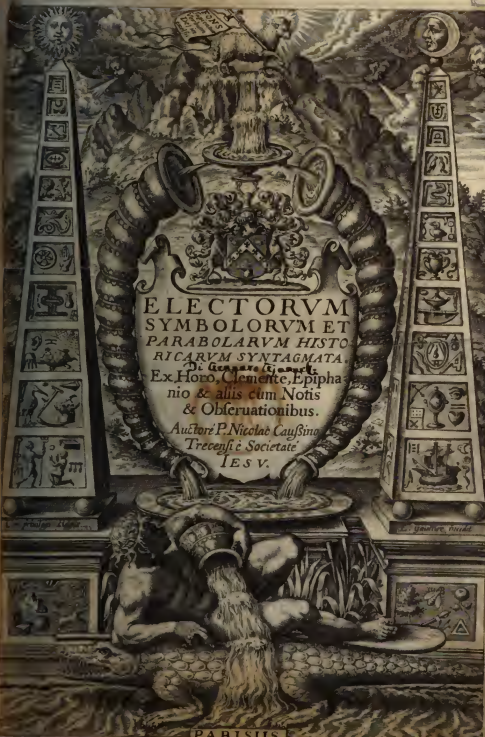 FONS
ELECTORVM
SYMBOLORVM ET
PARABOLARVM HISTO
RICARVM SYNTAGMATA.
Di Gennaro
Ex Horo, Clemente, Epipha-
nio & aliis cum Notis
& Obseruationibus.
Auctore P. Nicolao Caußino
Trecensi è Societate
IESV.
L. Gaultier incidit
PARISIIS